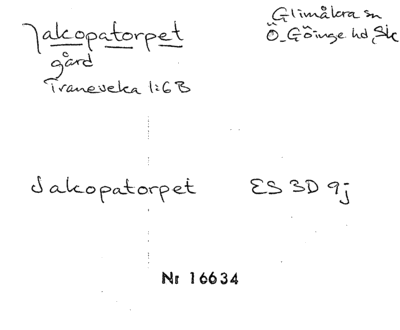 Jakopatorpet
gård
Traneveka 1:6B
Glimåkra sn
Ö. Göinge hd, Sk
Jakopatorpet ES 3D 9j
Nr 16634